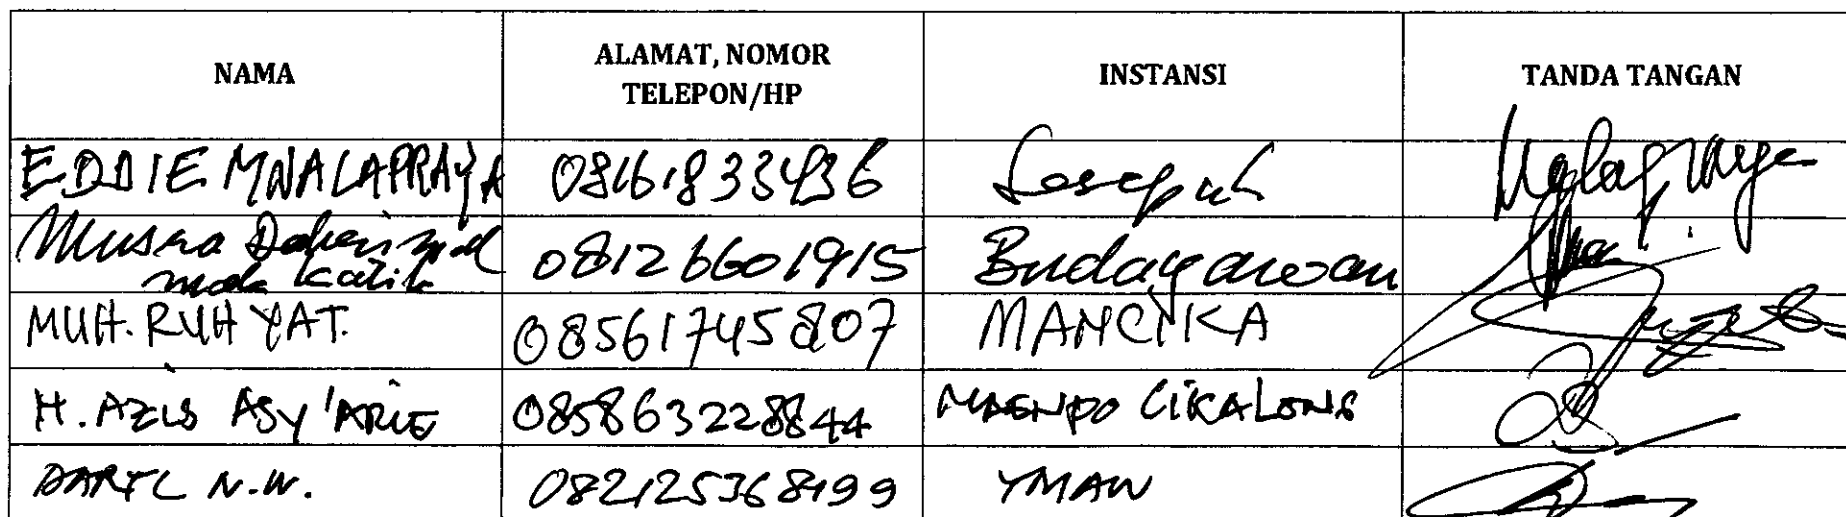 NAMA ALAMAT, NOMOR INSTANSI TANDA TANGAN
TELEPON/HP
EDDIE MNALAPRAYA 08161833436 Sesepuh
Musra Dahrizal 08126601915 Budayawan
moda Katik
MUH. RUHYAT. 08561745807 MANCIKA
H. AZIS ASY'ARIE 085863228844 MAENPO CIKALONG
DARYL N.W. 082125368199 YMAW